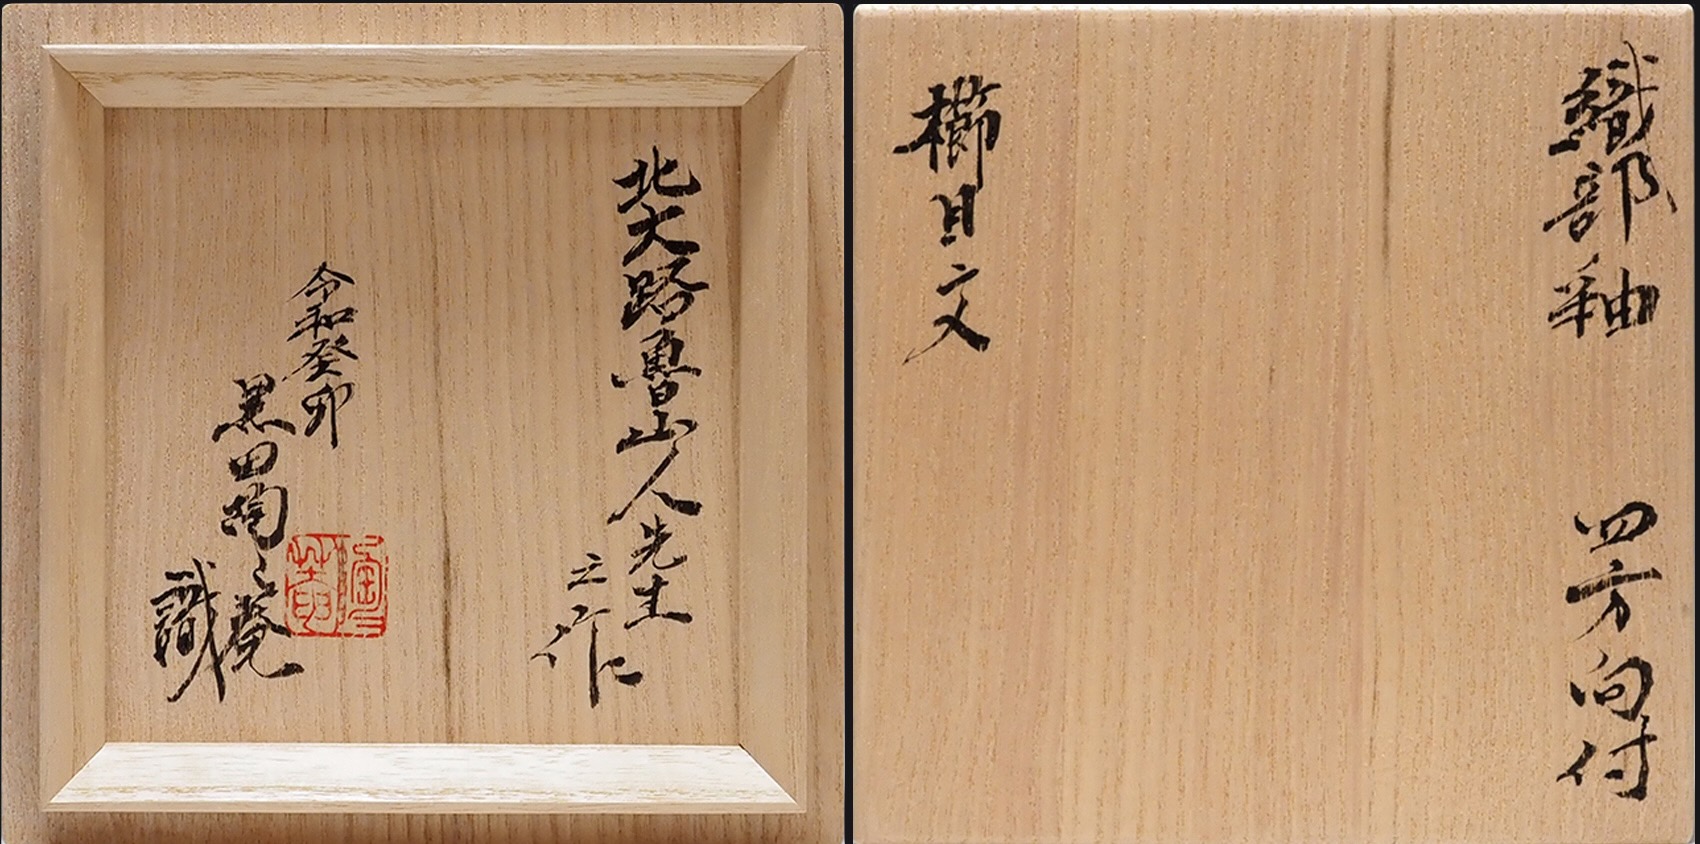 北大路魯山人先生
之作
令和癸卯
黒田陶々菴
識
織部釉 四方向付
櫛目文